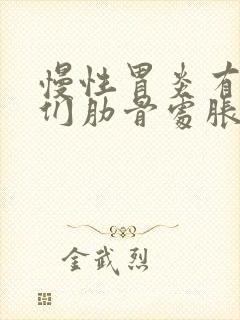 慢性胃炎有
们肋骨處脹
金武烈